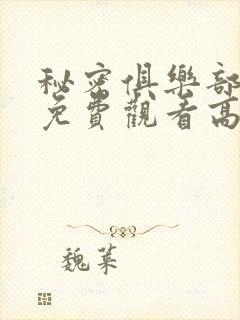 秘密俱樂部
免費觀看高
魏萊